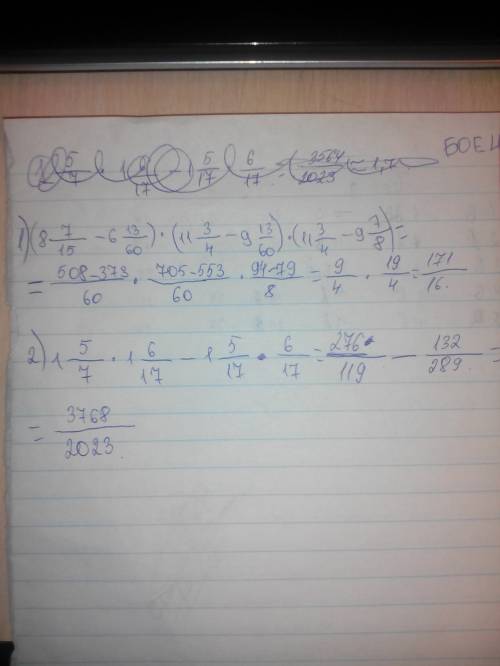 БОЕЦ
1) (8 7/15 - 6 13/60) · (11 3/4 - 9 13/60) · (11 3/4 - 9 7/8) =
= 508-373/60 · 705-553/60 · 94-79/8 = 9/4 · 19/4 = 171/16.
2) 1 5/7 · 1 6/17 - 1 5/17 · 6/17 = 276/119 - 132/289 =
= 3768/2023.